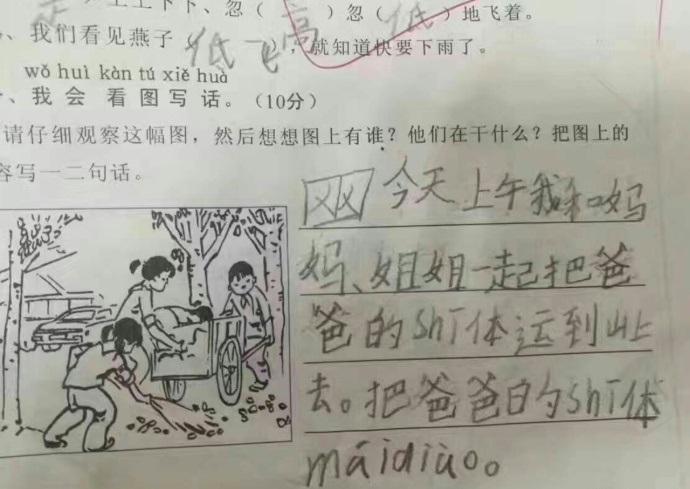 上上下下、忽（高）忽（低）地飞着。
、我们看见燕子低飞，就知道快要下雨了。
wǒ huì kàn tú xiě huà
、我会看图写话。（10分）
请仔细观察这幅图，然后想想图上有谁？他们在干什么？把图上的
容写一二句话。
今天上午我和妈
妈、姐姐一起把爸
爸的ShT体运到山上
去。把爸爸的ShT体
máidiùo。